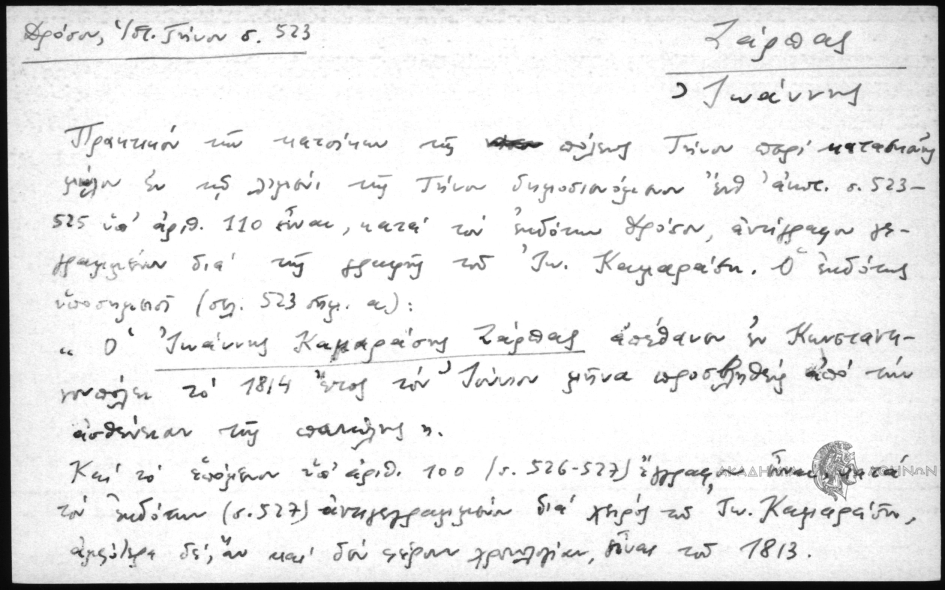 Δρόσου, Ἱστ. Τήνου σ. 523
Σάρπας
Ἰωάννης
Πρακτικόν τῶν κατοίκων τῆς πόλεως Τήνου περί κατασκευῆς
μώλου ἐν τῷ λιμένι τῆς Τήνου δημοσιευόμενον ἔνθ' ἀνωτ. σ. 523-
525 ὑπ' ἀριθ. 110 εἶναι, κατά τόν ἐκδότην Δρόσον, ἀντίγραφον γε-
γραμμένον διά τῆς γραφῆς τοῦ Ἰω. Καμαράση. Ὁ ἐκδότης
ὑποσημειοῖ (σελ. 523 σημ. α):
« Ὁ Ἰωάννης Καμαράσης Σάρπας ἀπέθανεν ἐν Κωνσταντι-
νουπόλει τό 1814 ἔτος τόν Ἰούνιον μῆνα προσβληθείς ἀπό τήν
ἀσθένειαν τῆς πανώλης ».
Καί τό ἑπόμενον ὑπ' ἀριθ. 100 (σ. 526-527) ἔγγραφον εἶναι κατά
τόν ἐκδότην (σ. 527) ἀντιγεγραμμένον διά χειρός τοῦ Ἰω. Καμαράση,
ἀμφότερα δέ, ἄν καί δέν φέρουν χρονολογίαν, εἶναι τοῦ 1813.
ΑΚΑΔΗΜΙΑ ΑΘΗΝΩΝ